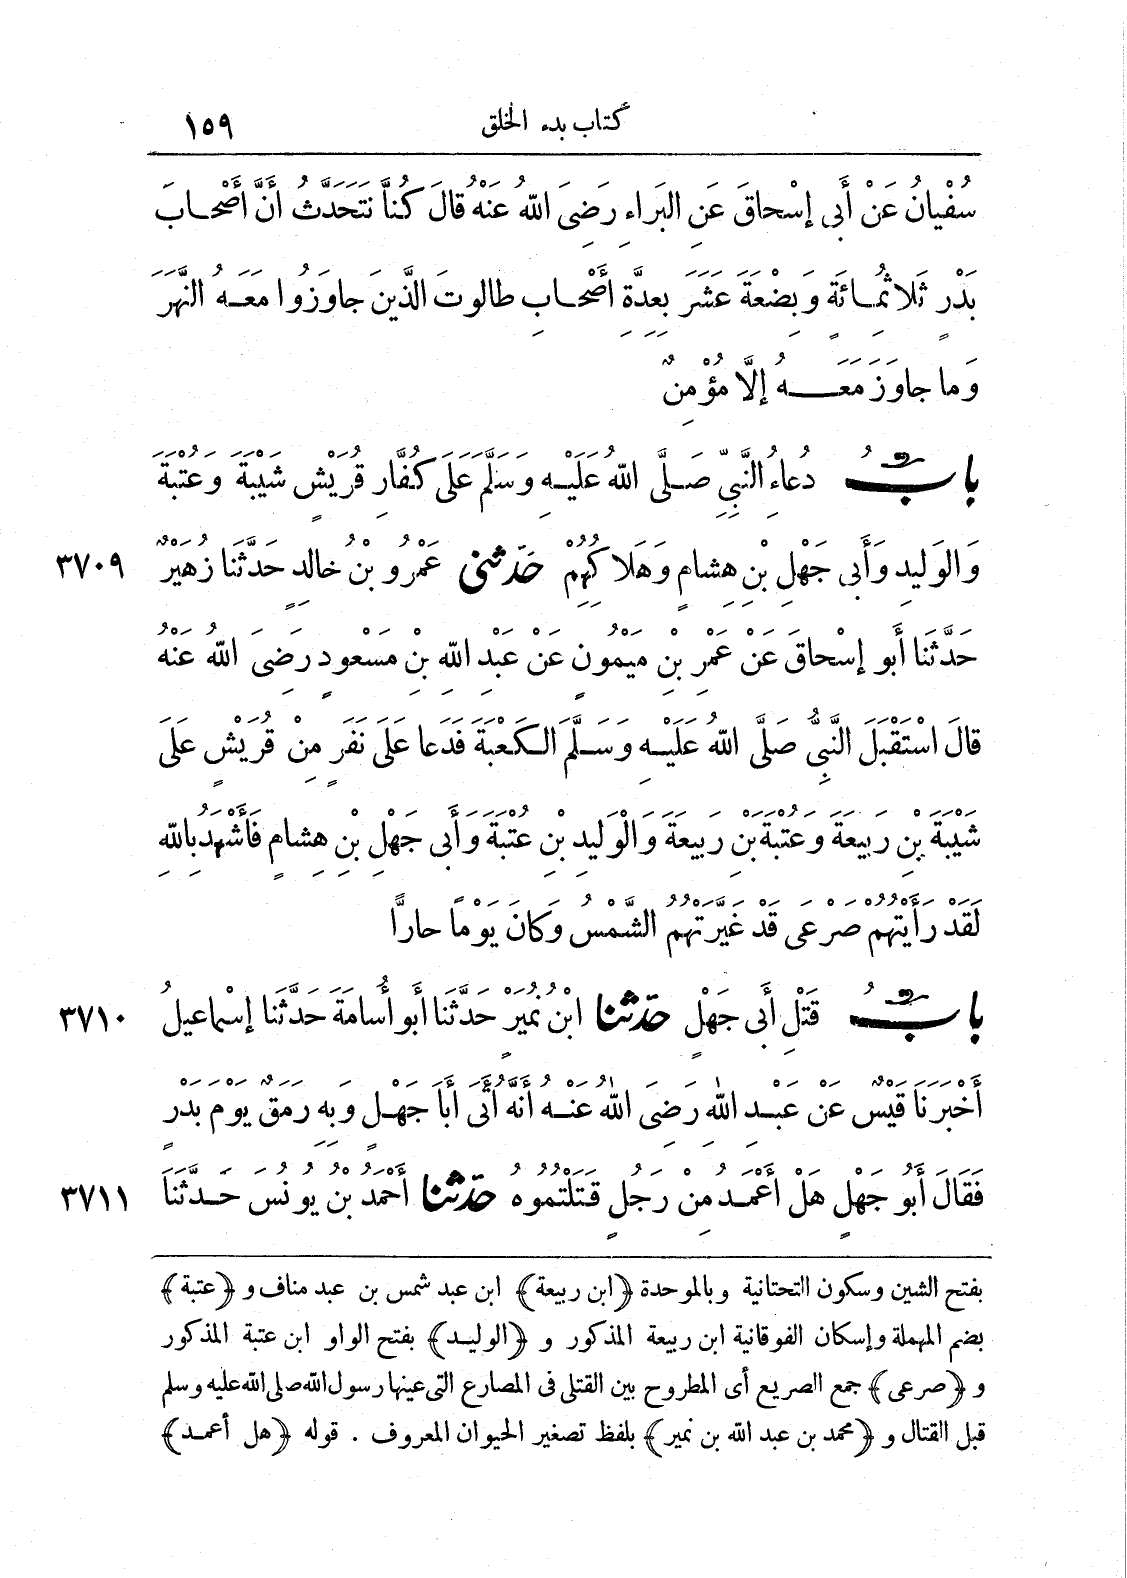 كتاب بدء الخلق ١٥٩
سُفْيانُ عَنْ أَبِى إسْحاقَ عَنِ البَراءِ رَضِىَ اللّٰهُ عَنْهُ قالَ كُنَّا نَتَحَدَّثُ أَنَّ أَصْحابَ
بَدْرٍ ثَلاثُمِائَةٍ وَبِضْعَةَ عَشَرَ بِعِدَّةِ أَصْحابِ طالُوتَ الَّذِينَ جاوَزُوا مَعَهُ النَّهَرَ
وَما جاوَزَ مَعَهُ إلَّا مُؤْمِنٌ
بابُ دُعاءِ النَّبِىِّ صَلَّى اللّٰهُ عَلَيْهِ وَسَلَّمَ عَلَى كُفَّارِ قُرَيْشٍ شَيْبَةَ وَعُتْبَةَ
وَالوَلِيدِ وَأَبِى جَهْلِ بْنِ هِشامٍ وَهَلاكُهُمْ حَدَّثَنِى عَمْرُو بْنُ خالِدٍ حَدَّثَنا زُهَيْرٌ ٣٧٠٩
حَدَّثَنا أَبو إسْحاقَ عَنْ عَمْرِو بْنِ مَيْمُونٍ عَنْ عَبْدِ اللّٰهِ بْنِ مَسْعودٍ رَضِىَ اللّٰهُ عَنْهُ
قالَ اسْتَقْبَلَ النَّبِىُّ صَلَّى اللّٰهُ عَلَيْهِ وَسَلَّمَ الكَعْبَةَ فَدَعا عَلَى نَفَرٍ مِنْ قُرَيْشٍ عَلَى
شَيْبَةَ بْنِ رَبِيعَةَ وَعُتْبَةَ بْنِ رَبِيعَةَ وَالْوَلِيدِ بْنِ عُتْبَةَ وَأَبِى جَهْلِ بْنِ هِشامٍ فَأَشْهَدُ بِاللّٰهِ
لَقَدْ رَأَيْتُهُمْ صَرْعَى قَدْ غَيَّرَتْهُمُ الشَّمْسُ وَكانَ يَوْمًا حارًّا
بابُ قَتْلِ أَبِى جَهْلٍ حَدَّثَنا ابْنُ نُمَيْرٍ حَدَّثَنا أَبو أُسامَةَ حَدَّثَنا إسْماعِيلُ ٣٧١٠
أَخْبَرَنا قَيْسٌ عَنْ عَبْدِ اللّٰهِ رَضِىَ اللّٰهُ عَنْهُ أَنَّهُ أَتَى أَبا جَهْلٍ وَبِهِ رَمَقٌ يَوْمَ بَدْرٍ
فَقَالَ أَبُو جَهْلٍ هَلْ أَعْمَدُ مِنْ رَجُلٍ قَتَلْتُمُوهُ حَدَّثَنا أَحْمَدُ بْنُ يُونُسَ حَدَّثَنَا ٣٧١١
بفتح الشين وسكون التحتانية وبالموحدة ﴿ابن ربيعة﴾ ابن عبد شمس بن عبد مناف و ﴿عتبة﴾
بضم المهملة وإسكان الفوقانية ابن ربيعة المذكور و ﴿الوليد﴾ بفتح الواو ابن عتبة المذكور
و ﴿صرعى﴾ جمع الصريع أى المطروح بين القتلى فى المصارع التى عينها رسول الله صلى الله عليه وسلم
قبل القتال و ﴿محمد بن عبد الله بن نمير﴾ بلفظ تصغير الحيوان المعروف . قوله ﴿هل أعمد﴾